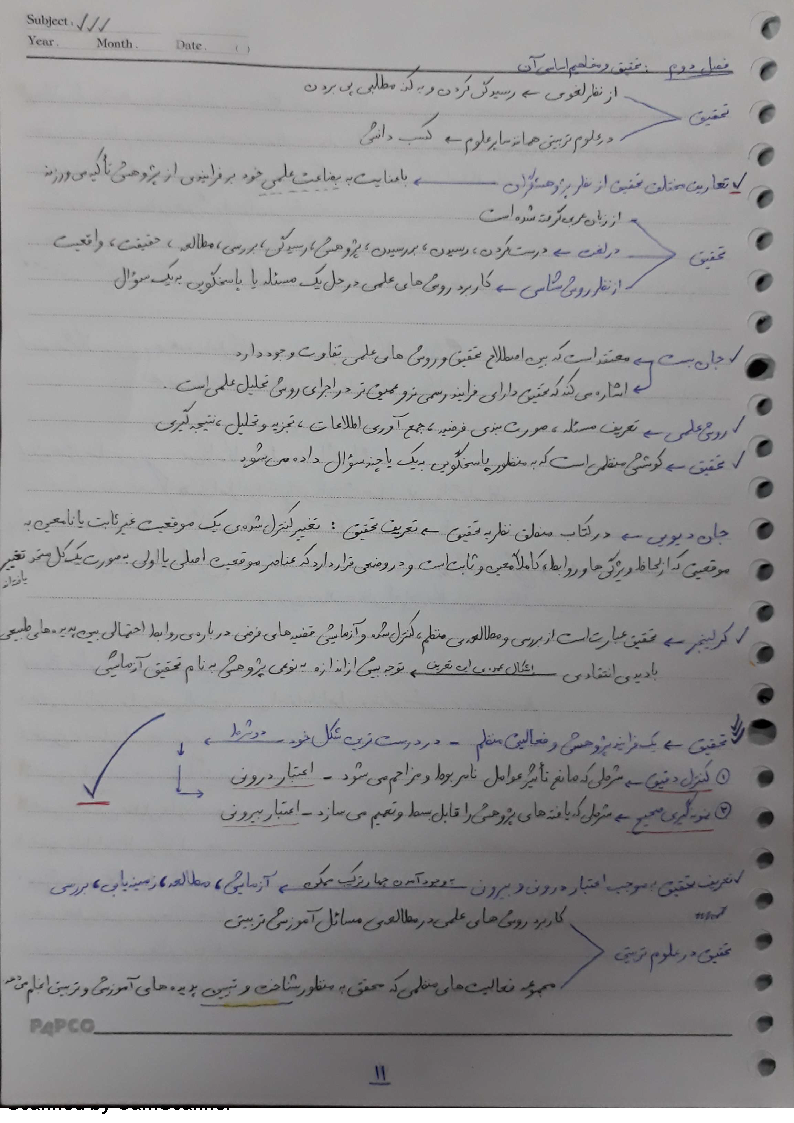 Subject:
Year. Month. Date. ( )
فصل دوم : تحقیق و مفاهیم اساسی آن
از نظر لغوی ← رسیدگی کردن و به کنه مطلبی پی بردن
تحقیق
در علوم تربیتی همانند سایر علوم ← کسب دانش
تعاریف مختلف تحقیق از نظر پژوهشگران ← باعنایت به بضاعت علمی خود بر فرایندی از پژوهش تأکید می ورزند
از زبان عربی گرفته شده است
تحقیق در لغت ← درست کردن، رسیدن، بررسیدن، پژوهش، رسیدگی، بررسی، مطالعه، حقیقت، واقعیت
از نظر روش شناسی ← کاربرد روش های علمی در حل یک مسئله یا پاسخگویی به یک سؤال
جان بست ← معتقد است که بین اصطلاح تحقیق و روش های علمی تفاوت وجود دارد
اشاره می کند که تحقیق دارای فرایند رسمی تر و عمیق تر در اجرای روش تحلیل علمی است.
روش علمی ← تعریف مسئله، صورت بندی فرضیه، جمع آوری اطلاعات، تجزیه و تحلیل، نتیجه گیری
تحقیق ← کوششی منظمی است که به منظور پاسخگویی به یک یا چند سؤال داده می شود
جان دیویی ← در کتاب منطق نظریه تحقیق ← تعریف تحقیق : تغییر کنترل شده ی یک موقعیت غیر ثابت یا نامعین به
موقعیتی که از لحاظ ویژگی ها و روابط، کاملاً معین و ثابت است و در وضعی قرار دارد که عناصر موقعیت اصلی یا اولی به صورت یک کل متحد تغییر
کرلینجر ← تحقیق عبارت است از بررسی و مطالعه ی منظم، کنترل شده و آزمایشی قضیه های فرضی درباره ی روابط احتمالی بین پدیده های طبیعی
بادیدی انتقادی اشکال عمده ی این تعریف ← توجه بیش از اندازه به نوعی پژوهش به نام تحقیق آزمایشی
تحقیق ← یک فرایند پژوهشی و فعالیتی منظم - در درست ترین شکل خود دو شرط ←
① کنترل دقیق ← شرطی که مانع تأثیر عوامل نامربوط و مزاحم می شود - اعتبار درونی
② نمونه گیری صحیح ← شرطی که یافته های پژوهش را قابل بسط و تعمیم می سازد - اعتبار بیرونی
تعریف تحقیق به موجب اعتبار درونی و بیرونی - بوجود آمدن چهار ترکیب ممکن ← آزمایشی، مطالعه، زمینه یابی، بررسی
کاربرد روش های علمی در مطالعه ی مسائل آموزشی تربیتی
تحقیق در علوم تربیتی
مجموعه فعالیت های منظمی که محقق به منظور شناخت و تبیین پدیده های آموزشی و تربیتی انجام می دهد
PAPCO
۱۱
Scanned by CamScanner